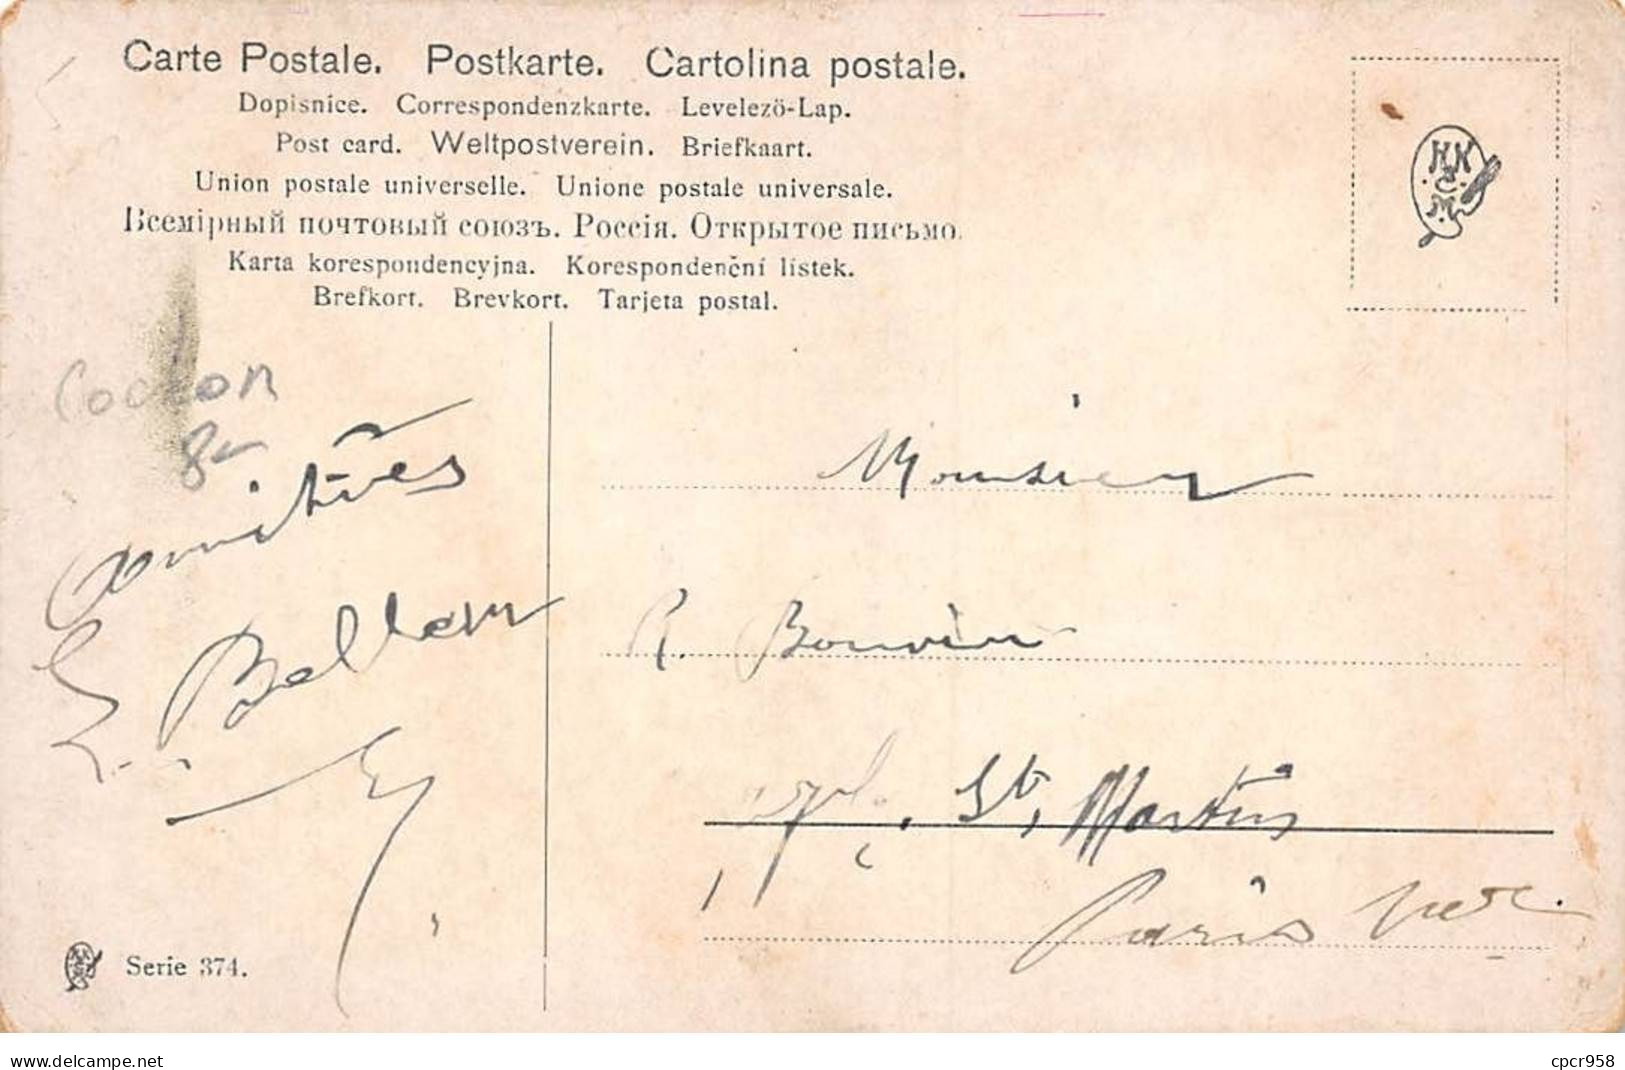 Carte Postale. Postkarte. Cartolina postale.
Dopisnice. Correspondenzkarte. Levelezö-Lap.
Post card. Weltpostverein. Briefkaart.
Union postale universelle. Unione postale universale.
Всемірный почтовый союзъ. Россія. Открытое письмо.
Karta korespondencyjna. Korespondenční lístek.
Brefkort. Brevkort. Tarjeta postal.
Cochon
8
Amitiés
Bellem
Monsieur
R. Bouvin
St. Martin
Paris
Serie 374.
www.delcampe.net
cpcr958